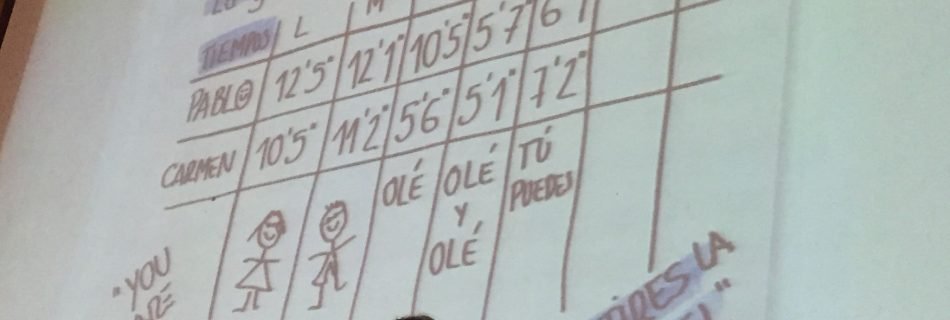 TIEMPOS L M
PABLO 12'5" 12'1" 10'5" 5'7" 6'1
CARMEN 10'5" 11'2" 5'6" 5'1" 7'2"
OLÉ OLÉ Y OLÉ TÚ PUEDES
"YOU ARE
LA